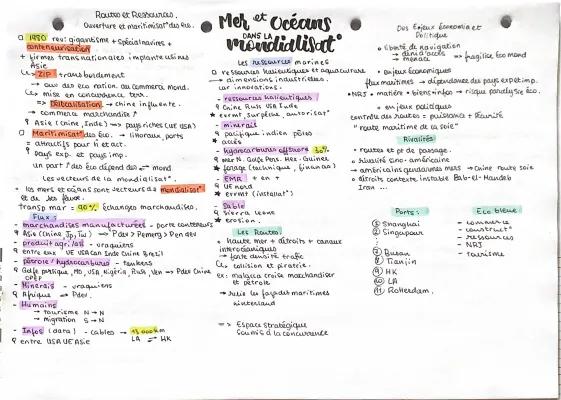 Routes et Ressources.
Ouverture et maritimisat° des éco.
1980 rev: gigantisme + spécial navires +
conteneurisation
+ firmes transnationales implantes usines
Asie
ZIP transbordement
mise en concurrence terr.
=> Littoralisation → chine influente.
→ commerce marchandise ↗
Asie (chine, Inde) => pays riches (UE USA)
Maritimisat° des éco. → littoraux, ports
= attractifs pour h et act.
Pays exp. et pays imp.
un part ↑ des éco dépend des → mond
Les vecteurs de la mondialisat°.
les mers et océans sont vecteurs de mondialisat°
et de ses flux.
transp mar = 90% échanges marchandises.
Flux :
- marchandises manufacturées - porte conteneurs
Asie (Chine, Jp, Tw) => Pdev > Pemerg > Pen dev
- produit agri/ali - vraquiers
entre eux UE USA Can Inde Chine Brésil
- pétrole / hydrocarbures - tankers
Golfe persique, MO, USA, Nigéria, Russ, Ven => Pdev Chine
OPEP
- Minerais - vraquiers
Afrique => Pdev.
- Humains
→ tourisme N → N
→ migration S → N
- Infos (data) - cables → 13 000km
LA ← HK
entre USA UE Asie
Mer et Océans
DANS LA
mondialisat°
Les ressources marines
ressources halieutiques et aquaculture
→ dimensions industrielles.
car innovations.
- ressources halieutiques
Chine Russ USA Inde
exvmt, surpêche, autorisat°
- minerais
pacifique indien pôles
accès
- hydrocarbures offshore 30%
mer N. Golfe Pers. Mex - Guinée
forage (technique, financ)
- EMR en +
UE nord
exvmt (installat°)
- Sable
Sierra Leone
erosion.
Les Routes.
haute mer + détroits + canaux
interocéaniques
→ forte densité trafic
collision et piraterie.
ex: malacca croise marchandiser
et pétrole
→ relie les façades maritimes
hinterland
=> Espace stratégique
soumis à la concurrence
Des Enjeux économiq et
Politique
liberté de navigation
→ dend accès
→ menacé => fragilise éco mond
enjeux économiques
flux maritimes → dépendance des pays expet imp.
NRJ + matière + biens + infos → risque paralysie éco.
en jeux politiques
contrôle des routes = puissance + sécurité
"route maritime de la soie"
Rivalités
routes et pt de passage.
rivalité sino - américaine
américains gendarmes mers → chine route soie
détroits contexte instable Bab-el-Mandeb
Iran ...
Ports :
① Shanghai
② Singapour
⑦ Busan
⑧ Tianjin
⑨ HK
⑩ LA
⑪ Rotterdam.
Eco bleue :
- commerce
- construct°
- ressources
- NRJ
- tourisme